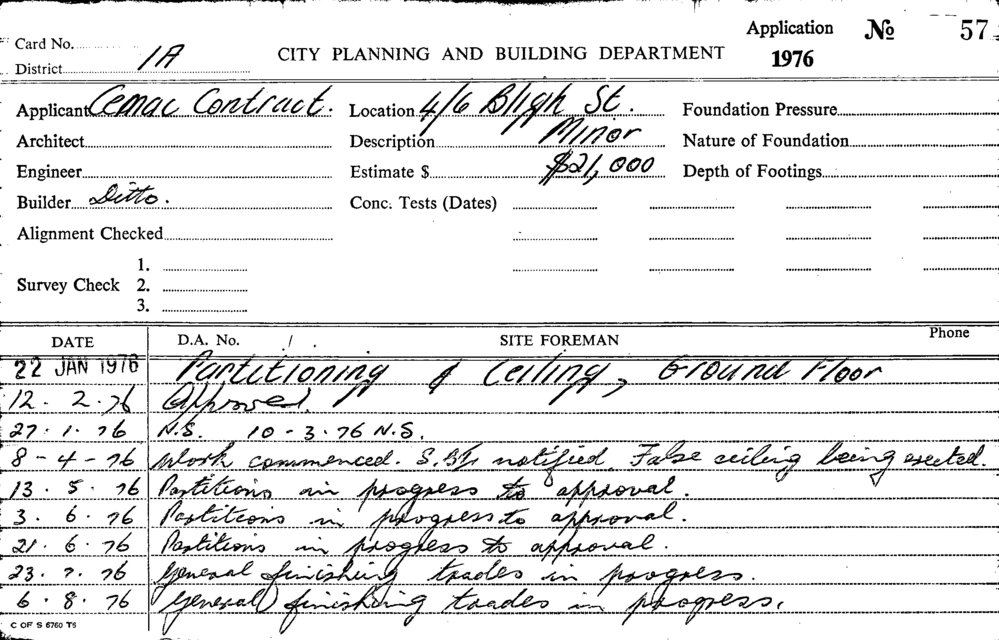 Card No. Application No 57
District 1A CITY PLANNING AND BUILDING DEPARTMENT 1976
Applicant Cemac Contract. Location 4/6 Bligh St. Foundation Pressure
Architect Description Minor Nature of Foundation
Engineer Estimate $ $21,000 Depth of Footings
Builder Ditto. Conc. Tests (Dates)
Alignment Checked
1.
Survey Check 2.
3.
DATE D.A. No. / . SITE FOREMAN Phone
22 JAN 1976 Partitioning & Ceiling, Ground Floor
12. 2. 76 Approved.
27. 1. 76 N.S. 10 - 3. 76 N.S.
8 - 4 - 76 Work commenced. notified. False ceiling being erected.
13. 5. 76 Partitions in progress to approval.
3. 6. 76 Partitions in progress to approval.
21. 6. 76 Partitions in progress to approval.
23. 7. 76 General finishing trades in progress.
6. 8. 76 General finishing trades in progress.
C OF S 6760 TS